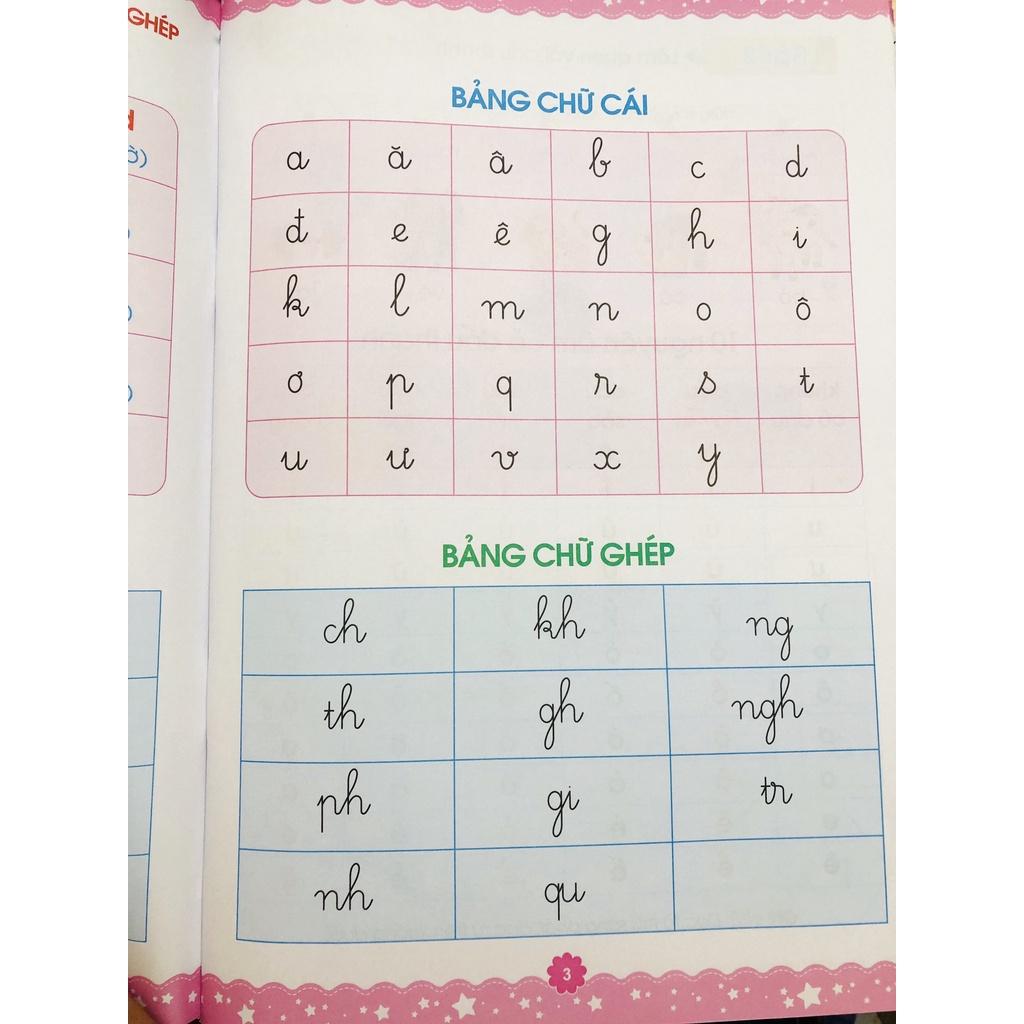 GHÉP
BẢNG CHỮ CÁI
a ă â b c d
đ e ê g h i
k l m n o ô
ơ p q r s t
u ư v x y
BẢNG CHỮ GHÉP
ch kh ng
th gh ngh
ph gi tr
nh qu
3